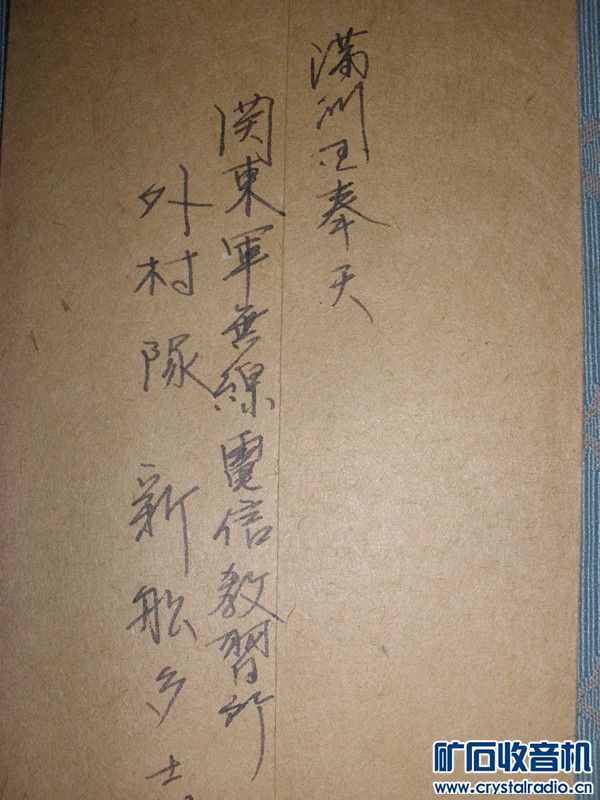 満洲国奉天
関東軍無線電信教習所
外村隊 新舩
矿石收音机
www.crystalradio.cn